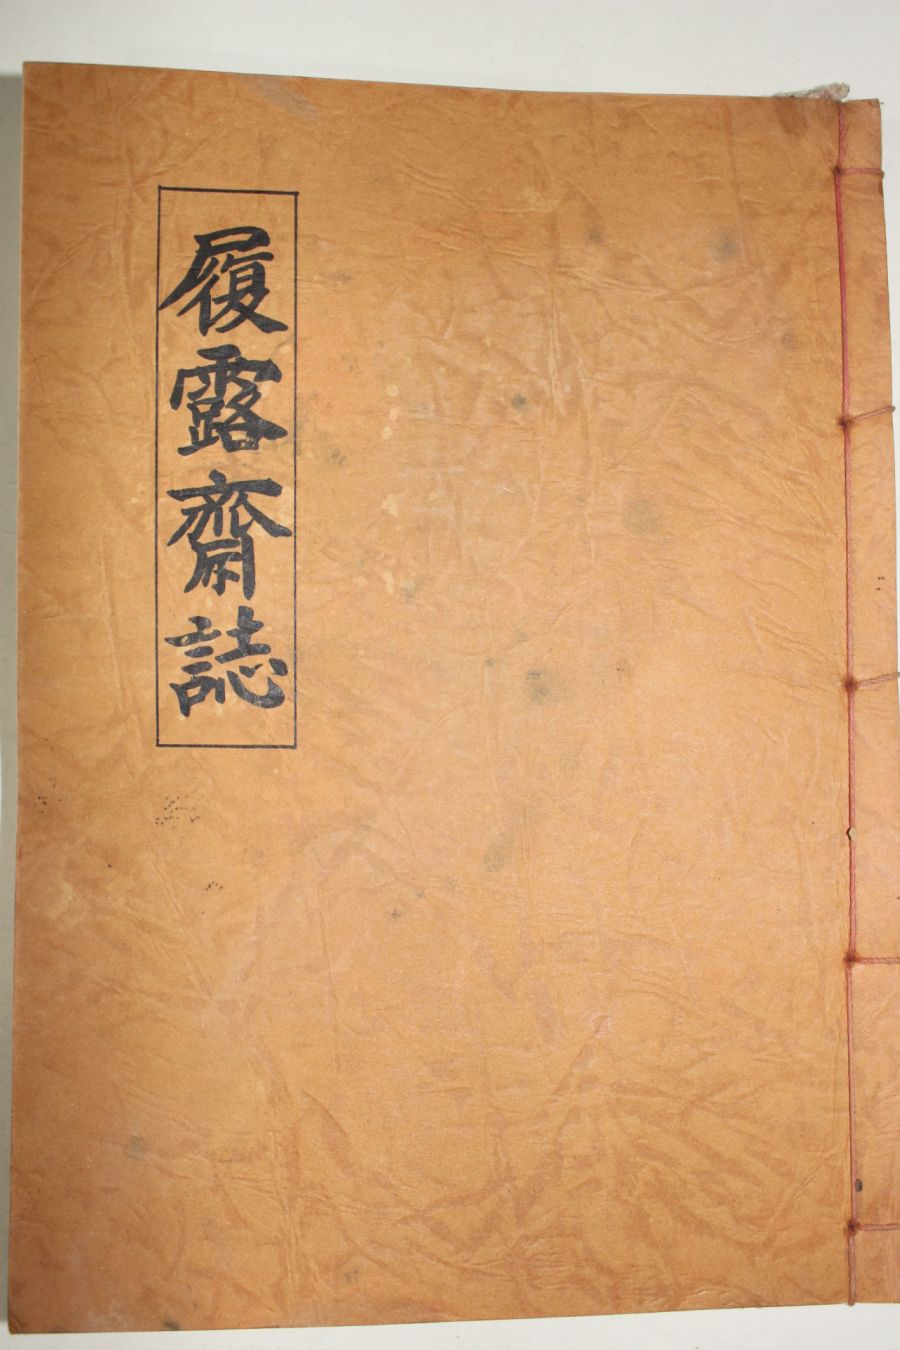 履露齋誌